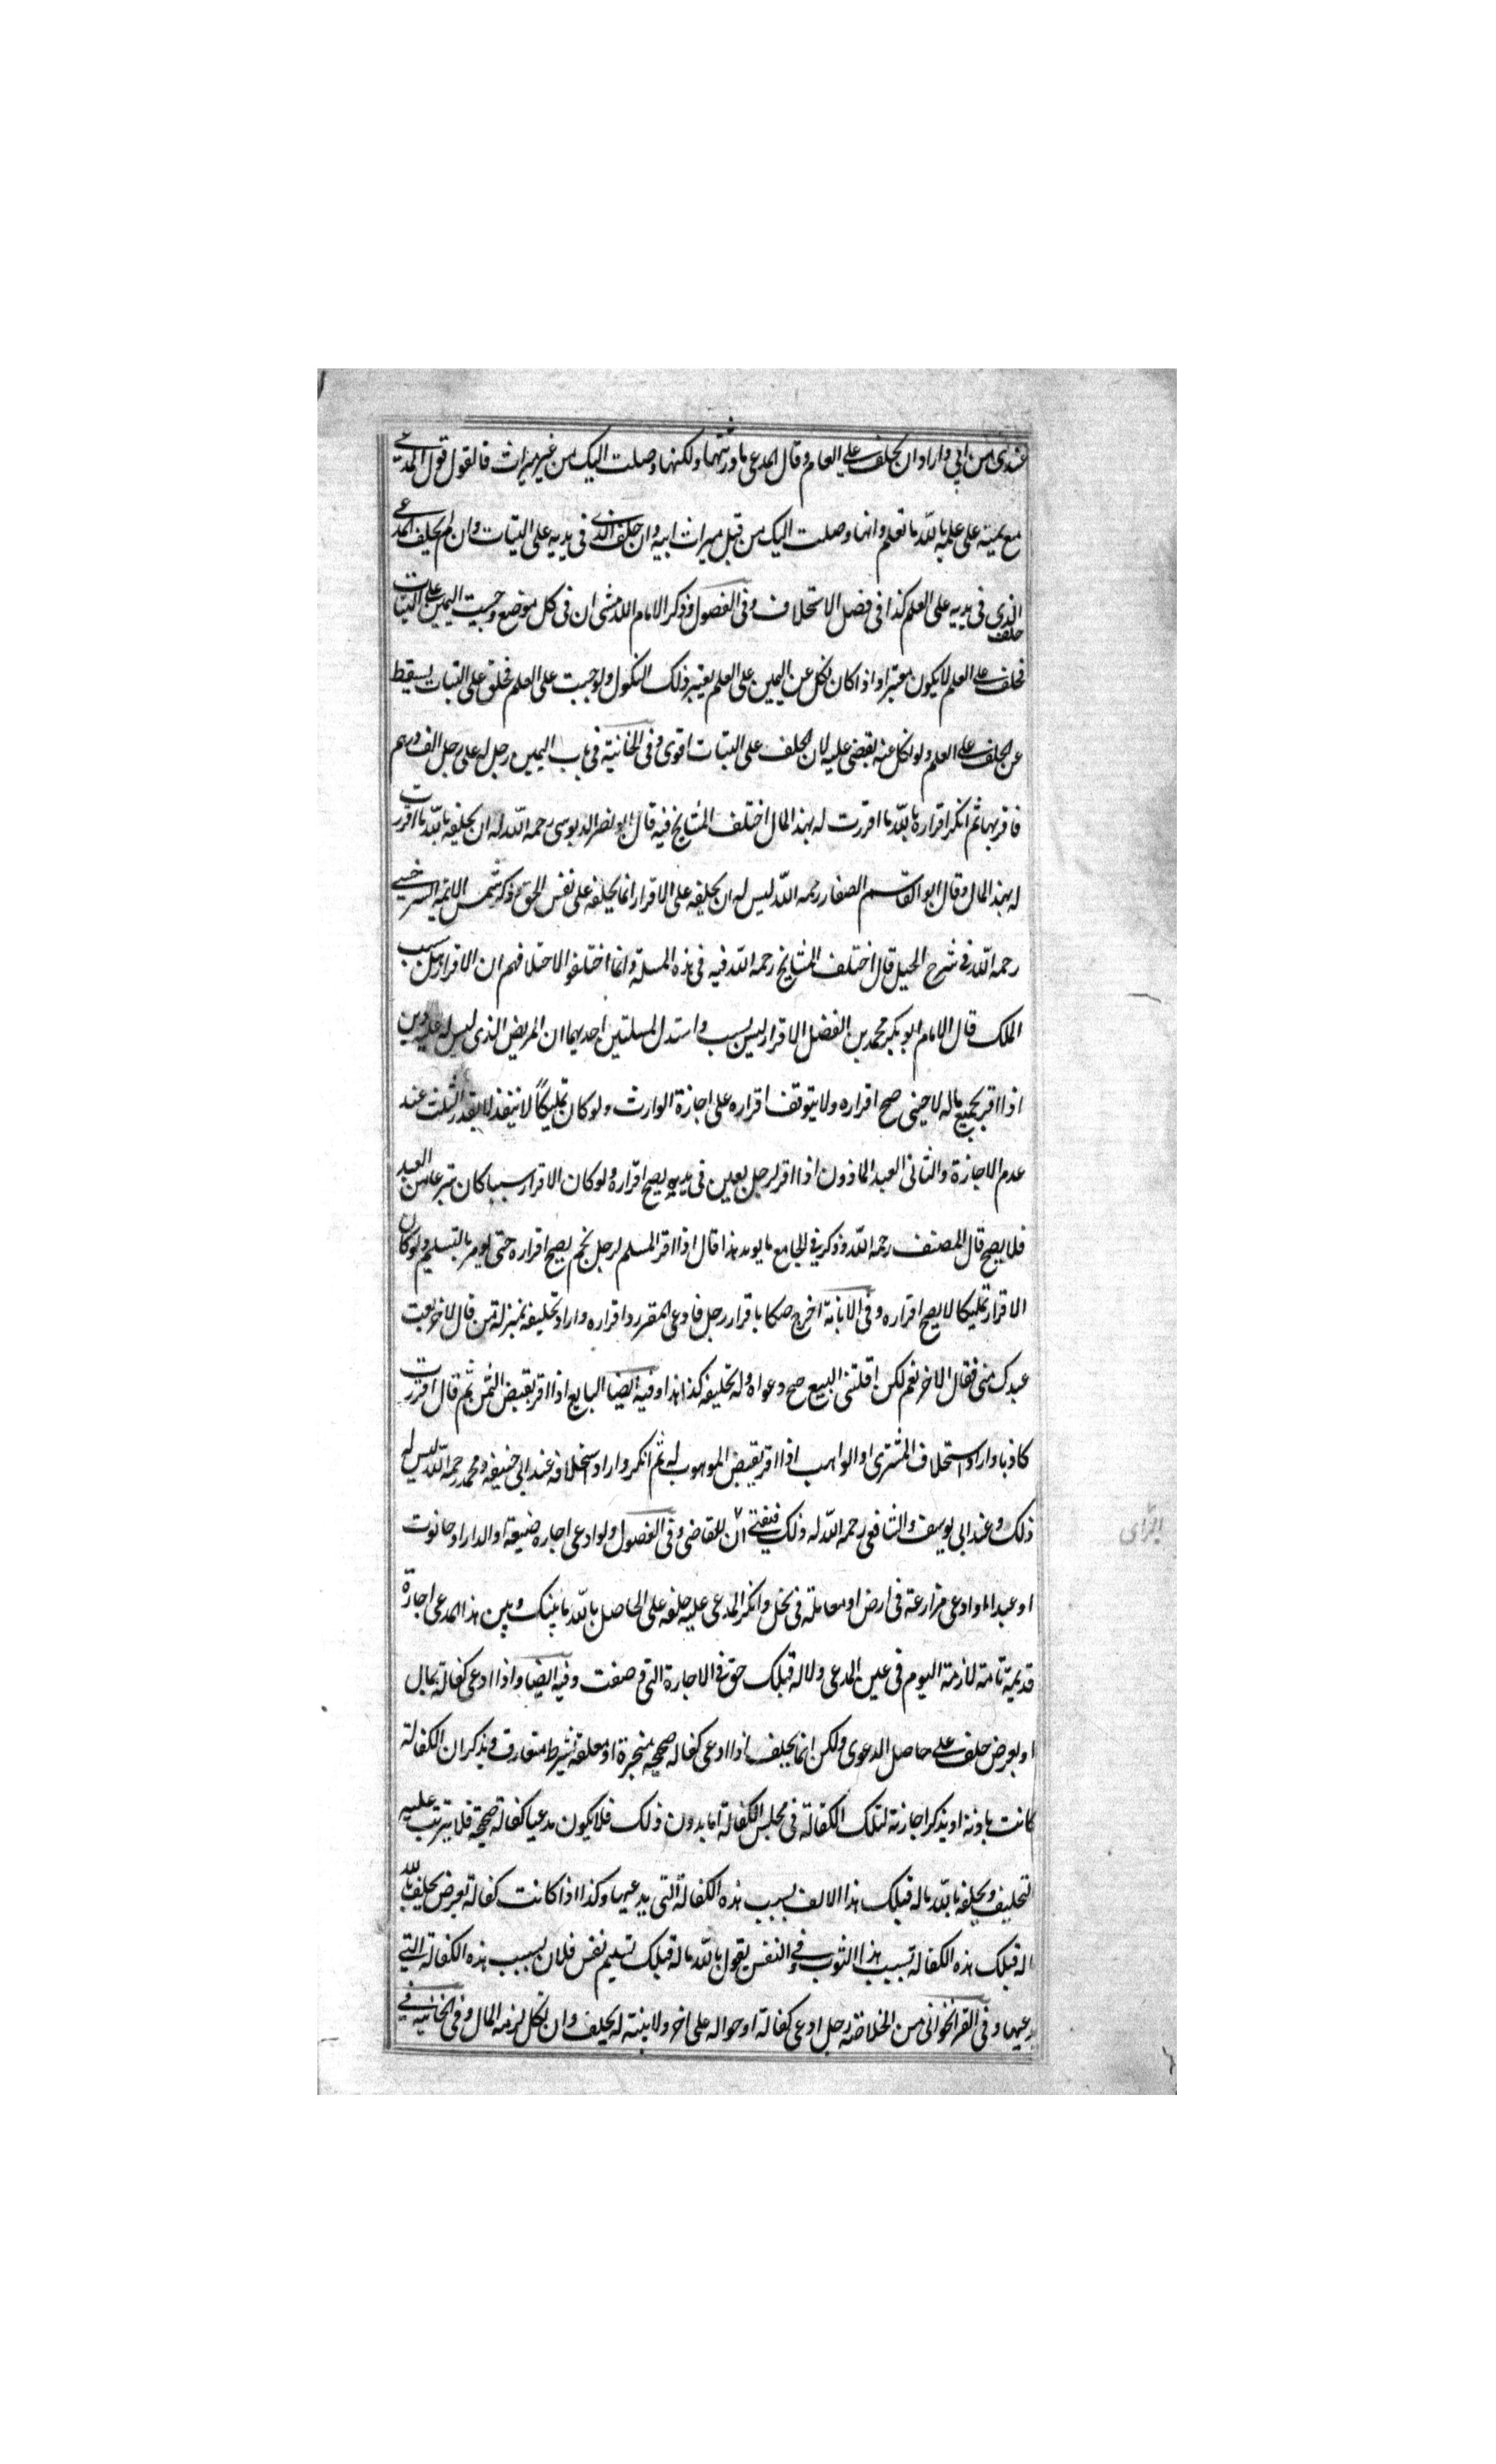 عندى من ابي واراد ان يحلف على العلم وقال المدعى ما ورثتها ولكنها وصلت اليك من غير ميراث فالقول قول المدعى
مع يمينه على علمه بالله ما تعلم وانها وصلت اليك من قبل ميراث ابيه وان حلف الذى فى يديه على البتات وان لم يحلف المدعى
الذى فى يديه على العلم كذا فى فصل الاستحلاف وفى الفصول وذكر الامام اللامشى ان فى كل موضع وجبت اليمين على البتات
حلف
فحلف على العلم لا يكون معتبرا واذا كان نكل عن اليمين على العلم يعتبر ذلك النكول ولو وجبت على العلم فحلف على البتات يسقط
عن الحلف على العلم ولو نكل عنه يقضى عليه لان الحلف على البتات اقوى وفى الخانية فى باب اليمين رجل له على رجل الف درهم
فاقر بها ثم انكر اقراره بالله ما اقررت له بهذا المال اختلف المشايخ فيه قال ابو نصر الدبوسى رحمه الله له ان يحلفه بالله ما اقررت
له بهذا المال وقال ابو القاسم الصفار رحمه الله ليس له ان يحلفه على الاقرار انما يحلفه على نفس الحق وذكر شمس الائمه السرخسى
رحمه الله فى شرح الحيل قال اختلف المشايخ رحمه الله فيه فى هذه المسلة وانما اختلفوا لاختلافهم ان الاقرار هل سبب
الملك قال الامام ابو بكر محمد بن الفضل الاقرار ليس بسبب واستدل لمسلتين احديهما ان المريض الذى ليس له عليه دين
اذا اقر بجميع ماله لاجنبى صح اقراره ولا يتوقف اقراره على اجازة الوارث ولو كان تمليكاً لا ينفذ لا بقدر الثلث عند
عدم الاجازة والثانى العبد الماذون اذا اقر لرجل بعين فى يديه يصح اقراره ولو كان الاقرار سببا كان تبرعا من العبد
فلا يصح قال المصنف رحمه الله وذكر فى الجامع ما يويد هذا قال اذا اقر المسلم لرجل بخمر يصح اقراره حتى يومر بالتسليم ولو كان
الاقرار تمليكا لا يصح اقراره وفى الابانة اخرج صكا باقرار رجل فادعى المقر رد اقراره واراد تحليفه بمنزلة من قال لاخر بعت
عبدك منى فقال الاخر نعم لكن اقلتنى البيع صح دعواه وله تحليفه كذا هذا وفيه ايضا البايع اذا اقر بقبض الثمن ثم قال اقررت
كاذبا واراد استحلاف المشترى او الواهب اذا اقر بقبض الموهوب له ثم انكر واراد استحلافه عند ابى حنيفه ومحمد رحمه الله ليس له
ذلك وعند ابى يوسف والشافعى رحمه الله له ذلك فيفتى للقاضى وفى الفصول ولو ادعى اجاره ضيعة او الدار او حانوت
او عبدا او ادعى مزارعة فى ارض او معاملة فى نخل وانكر المدعى عليه حلفه على الحاصل بالله ما بينك وبين هذا المدعى اجارة
قديمة تامة لازمة اليوم فى عين المدعى ولا له قبلك حق فى الاجارة التى وصفت وفيه ايضا واذا ادعى كفالة بمال
او بعرض حلف على حاصل الدعوى ولكن انما يحلف اذا ادعى كفاله صحيحه منجزة او معلقه بشرط متعارف ويذكر ان الكفالة
كانت باذنه او يذكر اجازته لتلك الكفالة فى مجلس الكفالة اما بدون ذلك فلا يكون مدعيا كفالة صحيحة فلا يترتب عليه
التحليف ويحلفه بالله ماله قبلك هذا الالف بسبب هذه الكفالة التى يدعيها وكذا اذا كانت كفالة بعرض يحلف بالله
ما له قبلك هذه الكفالة بسبب هذا الثوب وفى النفس يقول بالله ماله قبلك تسليم نفس فلان بسبب هذه الكفالة التى
يدعيها وفى القراخوانى من الخلاصة رجل ادعى كفالة او حواله على اخر ولا بينة له يحلف وان نكل لزمه المال وفى الخانيه فى